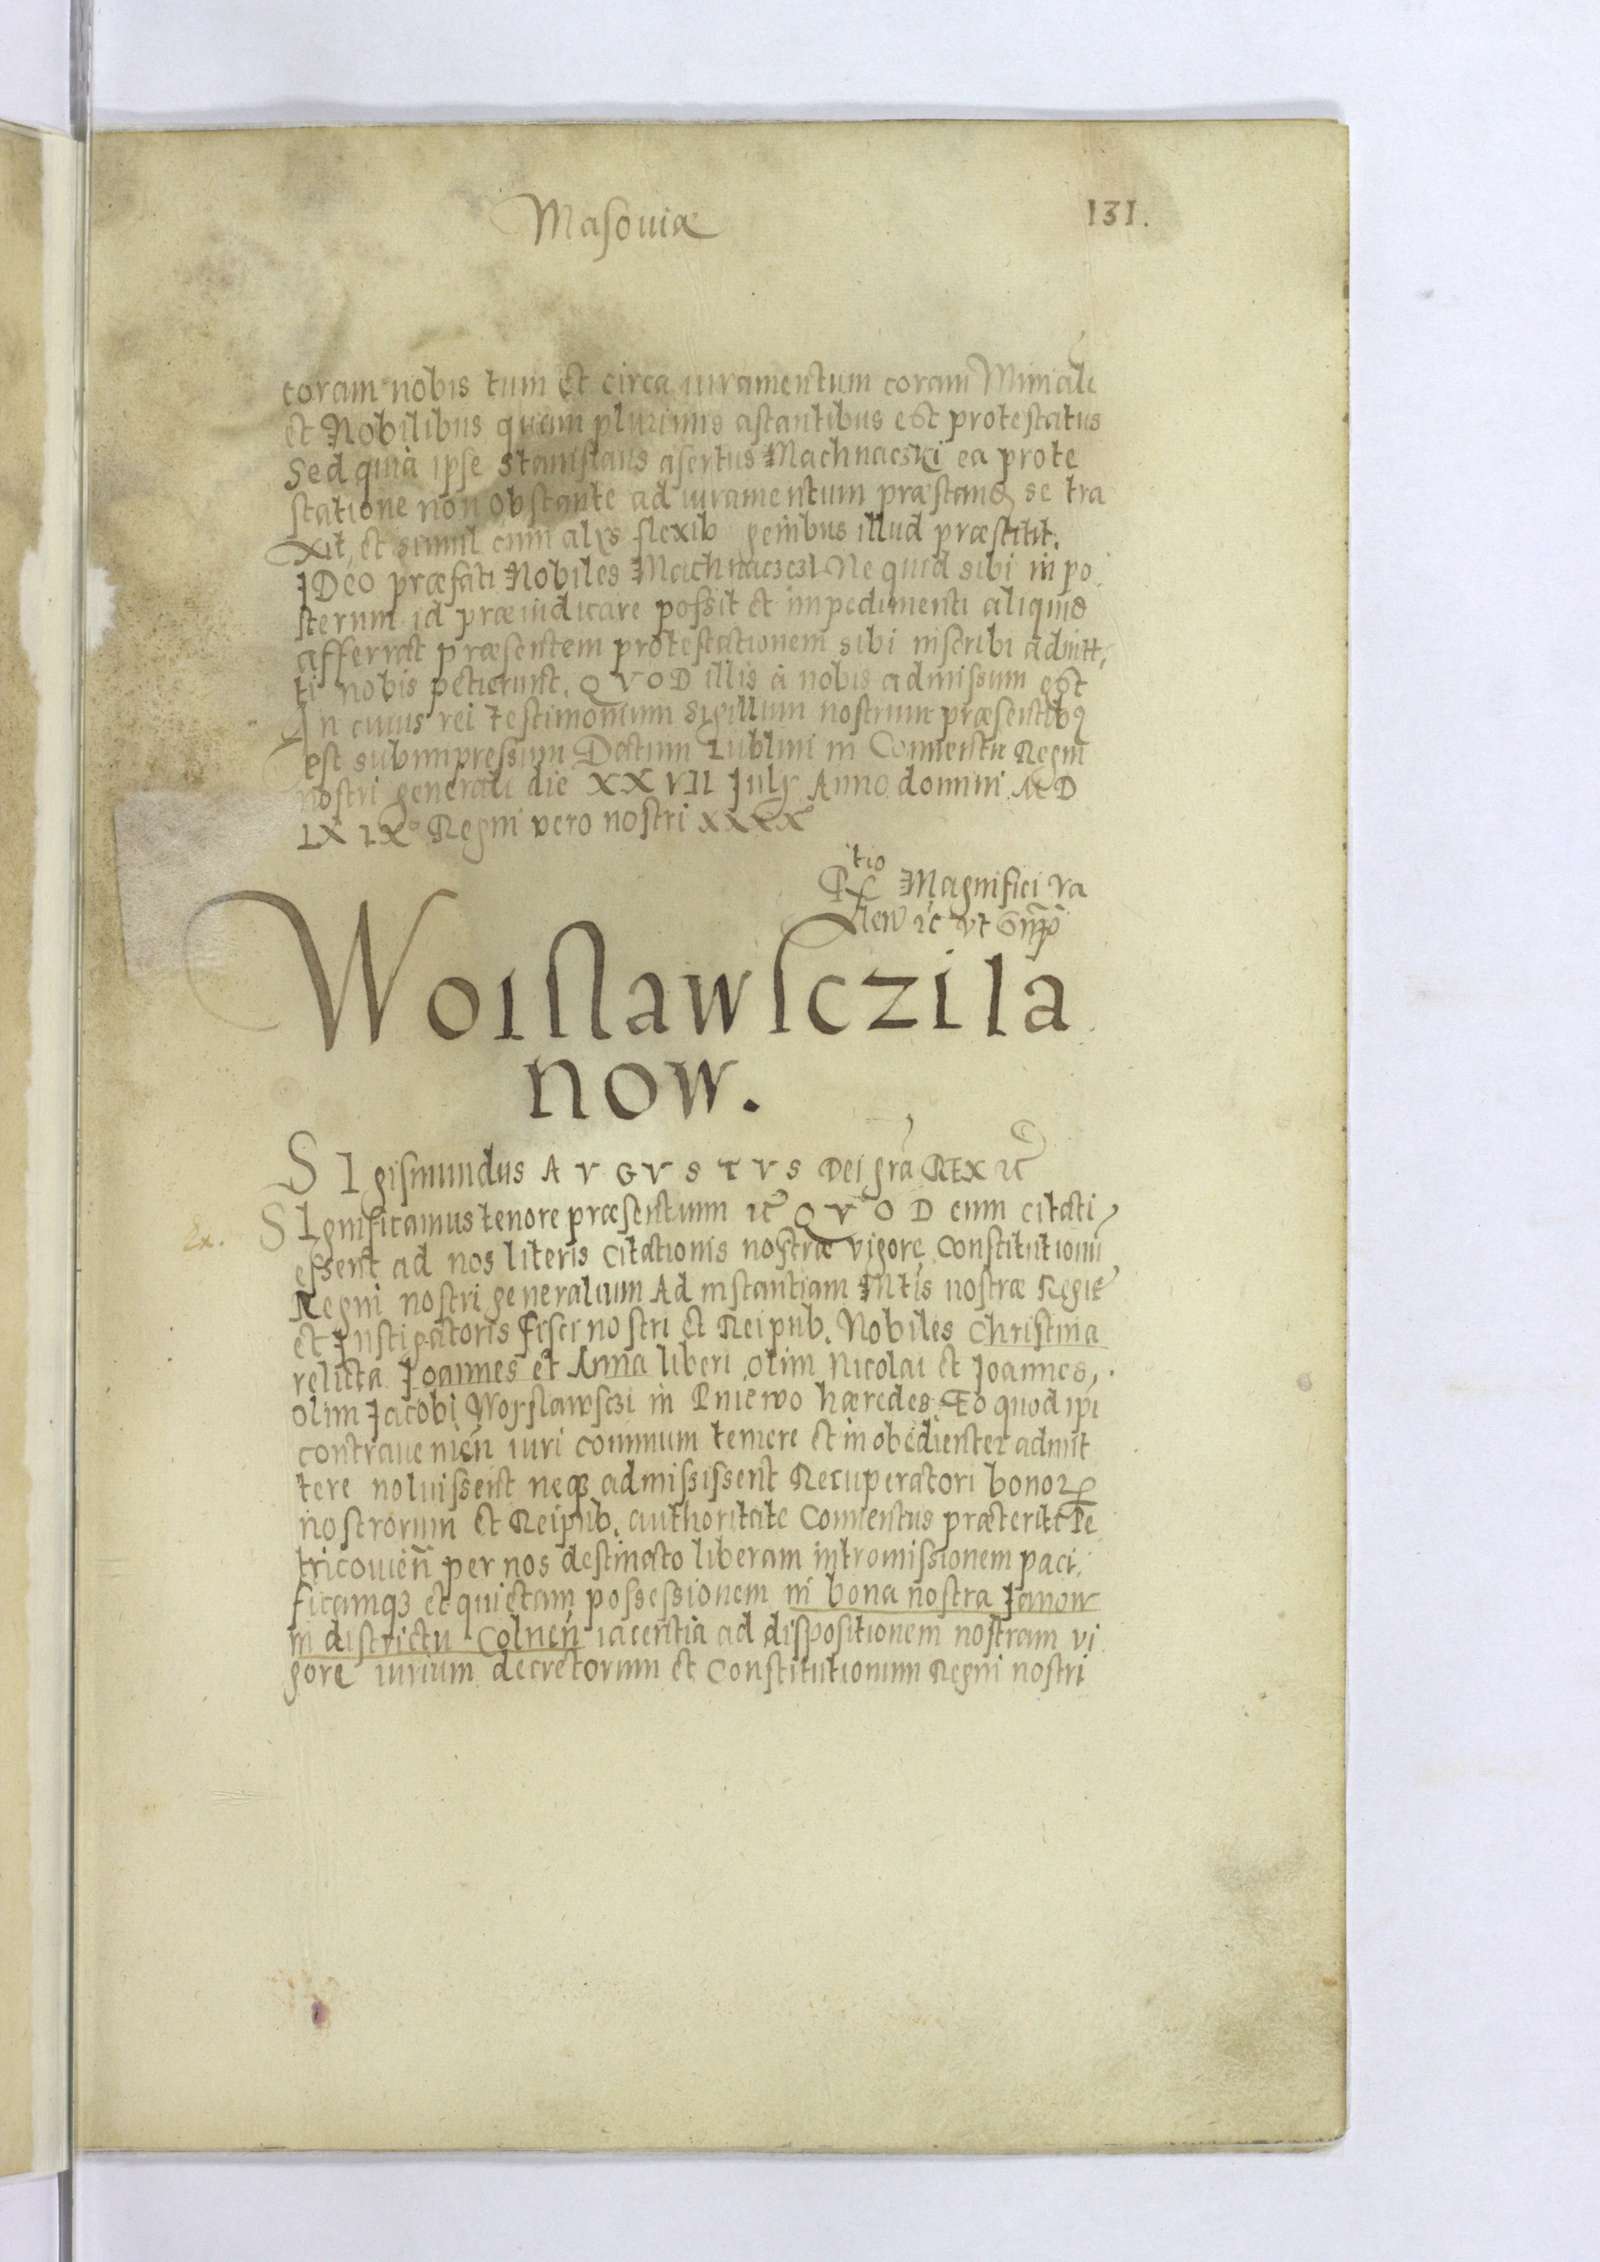 Masoviæ
131.
coram nobis tum et circa iuramentum coram Mimali
et Nobilibus quam plurimis astantibus est protestatus
Sed quia ipse Stanislaus asertus Machnaczki ea prote
statione non obstante ad iuramentum præstand se tra
xit, et simul cum alÿs flexib genibus illud præstitit.
IDeo præfati Nobiles Machnaczczi Ne quid sibi in po
sterum id præiudicare possit et impedimenti aliquid
afferrat præsentem protestationem sibi inscribi admitt,
ti nobis petierunt. QVOD illis à nobis admissum est
In cuius rei testimonium sigillum nostrum præsentibq
est subimpressum Datum Lublini in Conventu Regni
nostri generali die XXVII Julÿ Anno domini MD
LXIXº Regni vero nostri XXXX
Rtio Magnifici Va
len ꝛc vt Sup
Woislawsczi Ia
now.
SIgismundus AVGVSTVS Dei gra REX ꝛc
Ex.
SIgnificamus tenore præsentium ꝛc QVOD cum citati
essent ad nos literis citationis nostræ vigore Constitutionu
Regni nostri generalium Ad instantiam Mtis nostræ Regie
et Instigatoris fisci nostri et Reipub. Nobiles Christina
relicta Joannes et Anna liberi olim Nicolai et Joannes,
olim Jacobi Woyslawsczi in Pniewo hæredes Eo quod ipi
contravenien iuri communi temere et inobedienter admit
tere noluissent neqʒ admississent Recuperatori bonoꝝ
nostrorum et Reipub. authoritate Conventus præterite Pe
tricovien per nos destinato liberam intromissionem paci,
ficamqʒ et quietam possessionem in bona nostra Janow
in districtu Colnen iacentia ad dispositionem nostram vi
gore iurium decretorum et Constitutionum Regni nostri